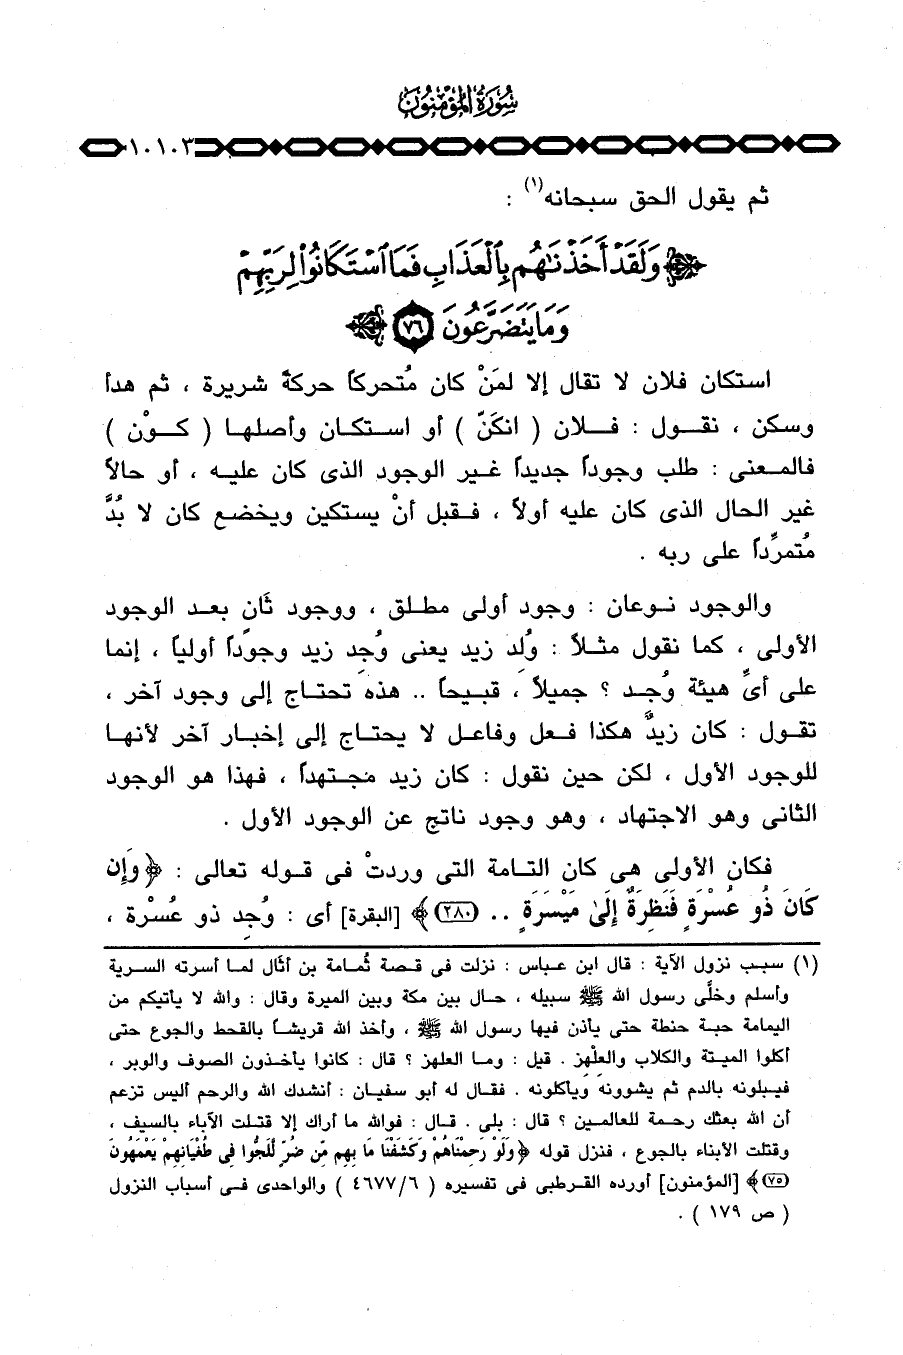 سُورَةُ المُؤْمِنُونَ
١٠١٠٣
ثم يقول الحق سبحانه(١) :
﴿ وَلَقَدْ أَخَذْنَٰهُم بِٱلْعَذَابِ فَمَا ٱسْتَكَانُوا۟ لِرَبِّهِمْ
وَمَا يَتَضَرَّعُونَ ٧٦ ﴾
استكان فلان لا تقال إلا لمَنْ كان مُتحركاً حركةً شريرة ، ثم هدأ
وسكن ، نقول : فلان ( انكَنّ ) أو استكان وأصلها ( كوْن )
فالمعنى : طلب وجوداً جديداً غير الوجود الذى كان عليه ، أو حالاً
غير الحال الذى كان عليه أولاً ، فقبل أنْ يستكين ويخضع كان لا بُدَّ
مُتمرِّداً على ربه .
والوجود نوعان : وجود أولى مطلق ، ووجود ثَان بعد الوجود
الأولى ، كما نقول مثلاً : وُلد زيد يعنى وُجِد زيد وجوداً أولياً ، إنما
على أىِّ هيئة وُجِد ؟ جميلاً ، قبيحاً .. هذه تحتاج إلى وجود آخر ،
تقول : كان زيدٌ هكذا فعل وفاعل لا يحتاج إلى إخبار آخر لأنها
للوجود الأول ، لكن حين نقول : كان زيد مجتهداً ، فهذا هو الوجود
الثانى وهو الاجتهاد ، وهو وجود ناتج عن الوجود الأول .
فكان الأولى هى كان التامة التى وردتْ فى قوله تعالى : ﴿ وَإِن
كَانَ ذُو عُسْرَةٍ فَنَظِرَةٌ إِلَىٰ مَيْسَرَةٍ .. (٢٨٠) ﴾ [البقرة] أى : وُجِد ذو عُسْرة ،
(١) سبب نزول الآية : قال ابن عباس : نزلت فى قصة ثُمامة بن أثال لما أسرته السرية
وأسلم وخلَّى رسول الله ﷺ سبيله ، حال بين مكة وبين الميرة وقال : والله لا يأتيكم من
اليمامة حبة حنطة حتى يأذن فيها رسول الله ﷺ ، وأخذ الله قريشاً بالقحط والجوع حتى
أكلوا الميتة والكلاب والعلْهز . قيل : وما العلهز ؟ قال : كانوا يأخذون الصوف والوبر ،
فيبلونه بالدم ثم يشوونه ويأكلونه . فقال له أبو سفيان : أنشدك الله والرحم أليس تزعم
أن الله بعثك رحمة للعالمين ؟ قال : بلى . قال : فوالله ما أراك إلا قتلت الآباء بالسيف ،
وقتلت الأبناء بالجوع ، فنزل قوله ﴿ وَلَوْ رَحِمْنَاهُمْ وَكَشَفْنَا مَا بِهِم مِّن ضُرٍّ لَّلَجُّوا فِي طُغْيَانِهِمْ يَعْمَهُونَ
(٧٥) ﴾ [المؤمنون] أورده القرطبى فى تفسيره ( ٤٦٧٧/٦ ) والواحدى فى أسباب النزول
( ص ١٧٩ ) .